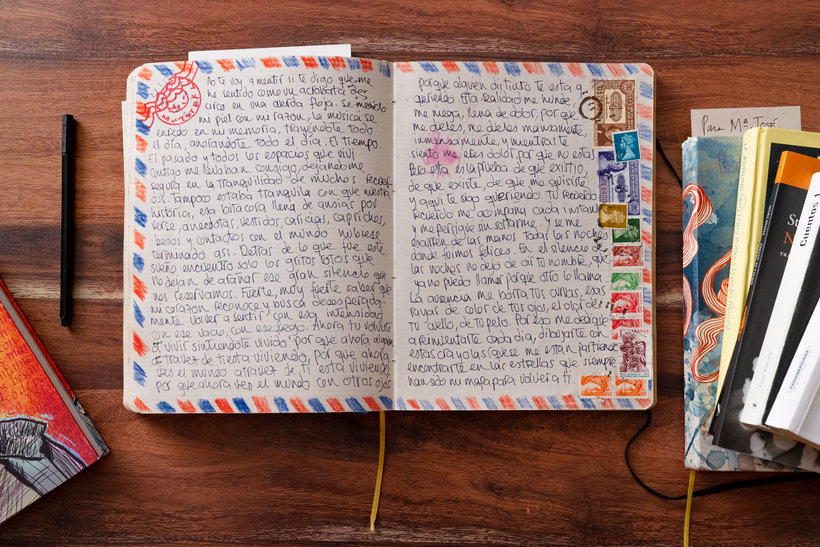 No te voy a mentir si te digo que me
he sentido como un acróbata de
circo en una cuerda floja. Se
mi piel con mi razón, la música se
enredo en mi memoria, trayéndote todo
el día, añorándote todo el día. El tiempo
El pasado y todos los espacios que viví
contigo me llevaban consigo, dejándome
segura en la tranquilidad de muchos
Tampoco estaba tranquila con nuestra
historia, esa bitácora llena de ansias por
verte, anécdotas, vestidos, caricias, caprichos,
besos y contactos con el mundo hubiese
terminado así. Detrás de lo que fue este
sueño encuentro solo los gritos rotos que
no dejan de arañar ese gran silencio que
nos reservamos. Fuerte, muy fuerte saber que
mi corazón reconoce y busca desesperada-
mente volver a sentir, con esa intensidad
con ese fuego. Ahora tu volviste
a vivir sintiéndote vivido porque ahora alguien
a travez de ti esta viviendo, por que ahora
ves el mundo atravez de ti esta viviendo
por que ahora ves el mundo con otros ojos
porque alguien distinto te esta
queriendo. Esta realidad me hunde,
me niega, llena de dolor, por que
me dueles, me dueles mansamente,
mente, y mientras te
siento me eres dolor por que no estas
es la prueba de que existió,
de que existe, de que me quisiste
y aquí te sigo queriendo. Tu recuerdo
Recuerdo me acompaña cada instante
y me persigue sin soltarme, y se me
escurren de las manos todas las noches
donde fuimos felices. En el silencio de
las noches no dejo de oir tu nombre, que
ya no puedo llamar porque otro lo llama.
La ausencia me borra tus curvas, esos
rayos de color de tus ojos, el olor de
tu cuello, de tu pelo. Por eso me dedique
a reinventarte cada día, dibujarte con
estas crayolas que se me están partiendo
encontrarte en las estrellas que siempre
han sido mi mapa para volver a ti
Para Mª José
Cuentos 1